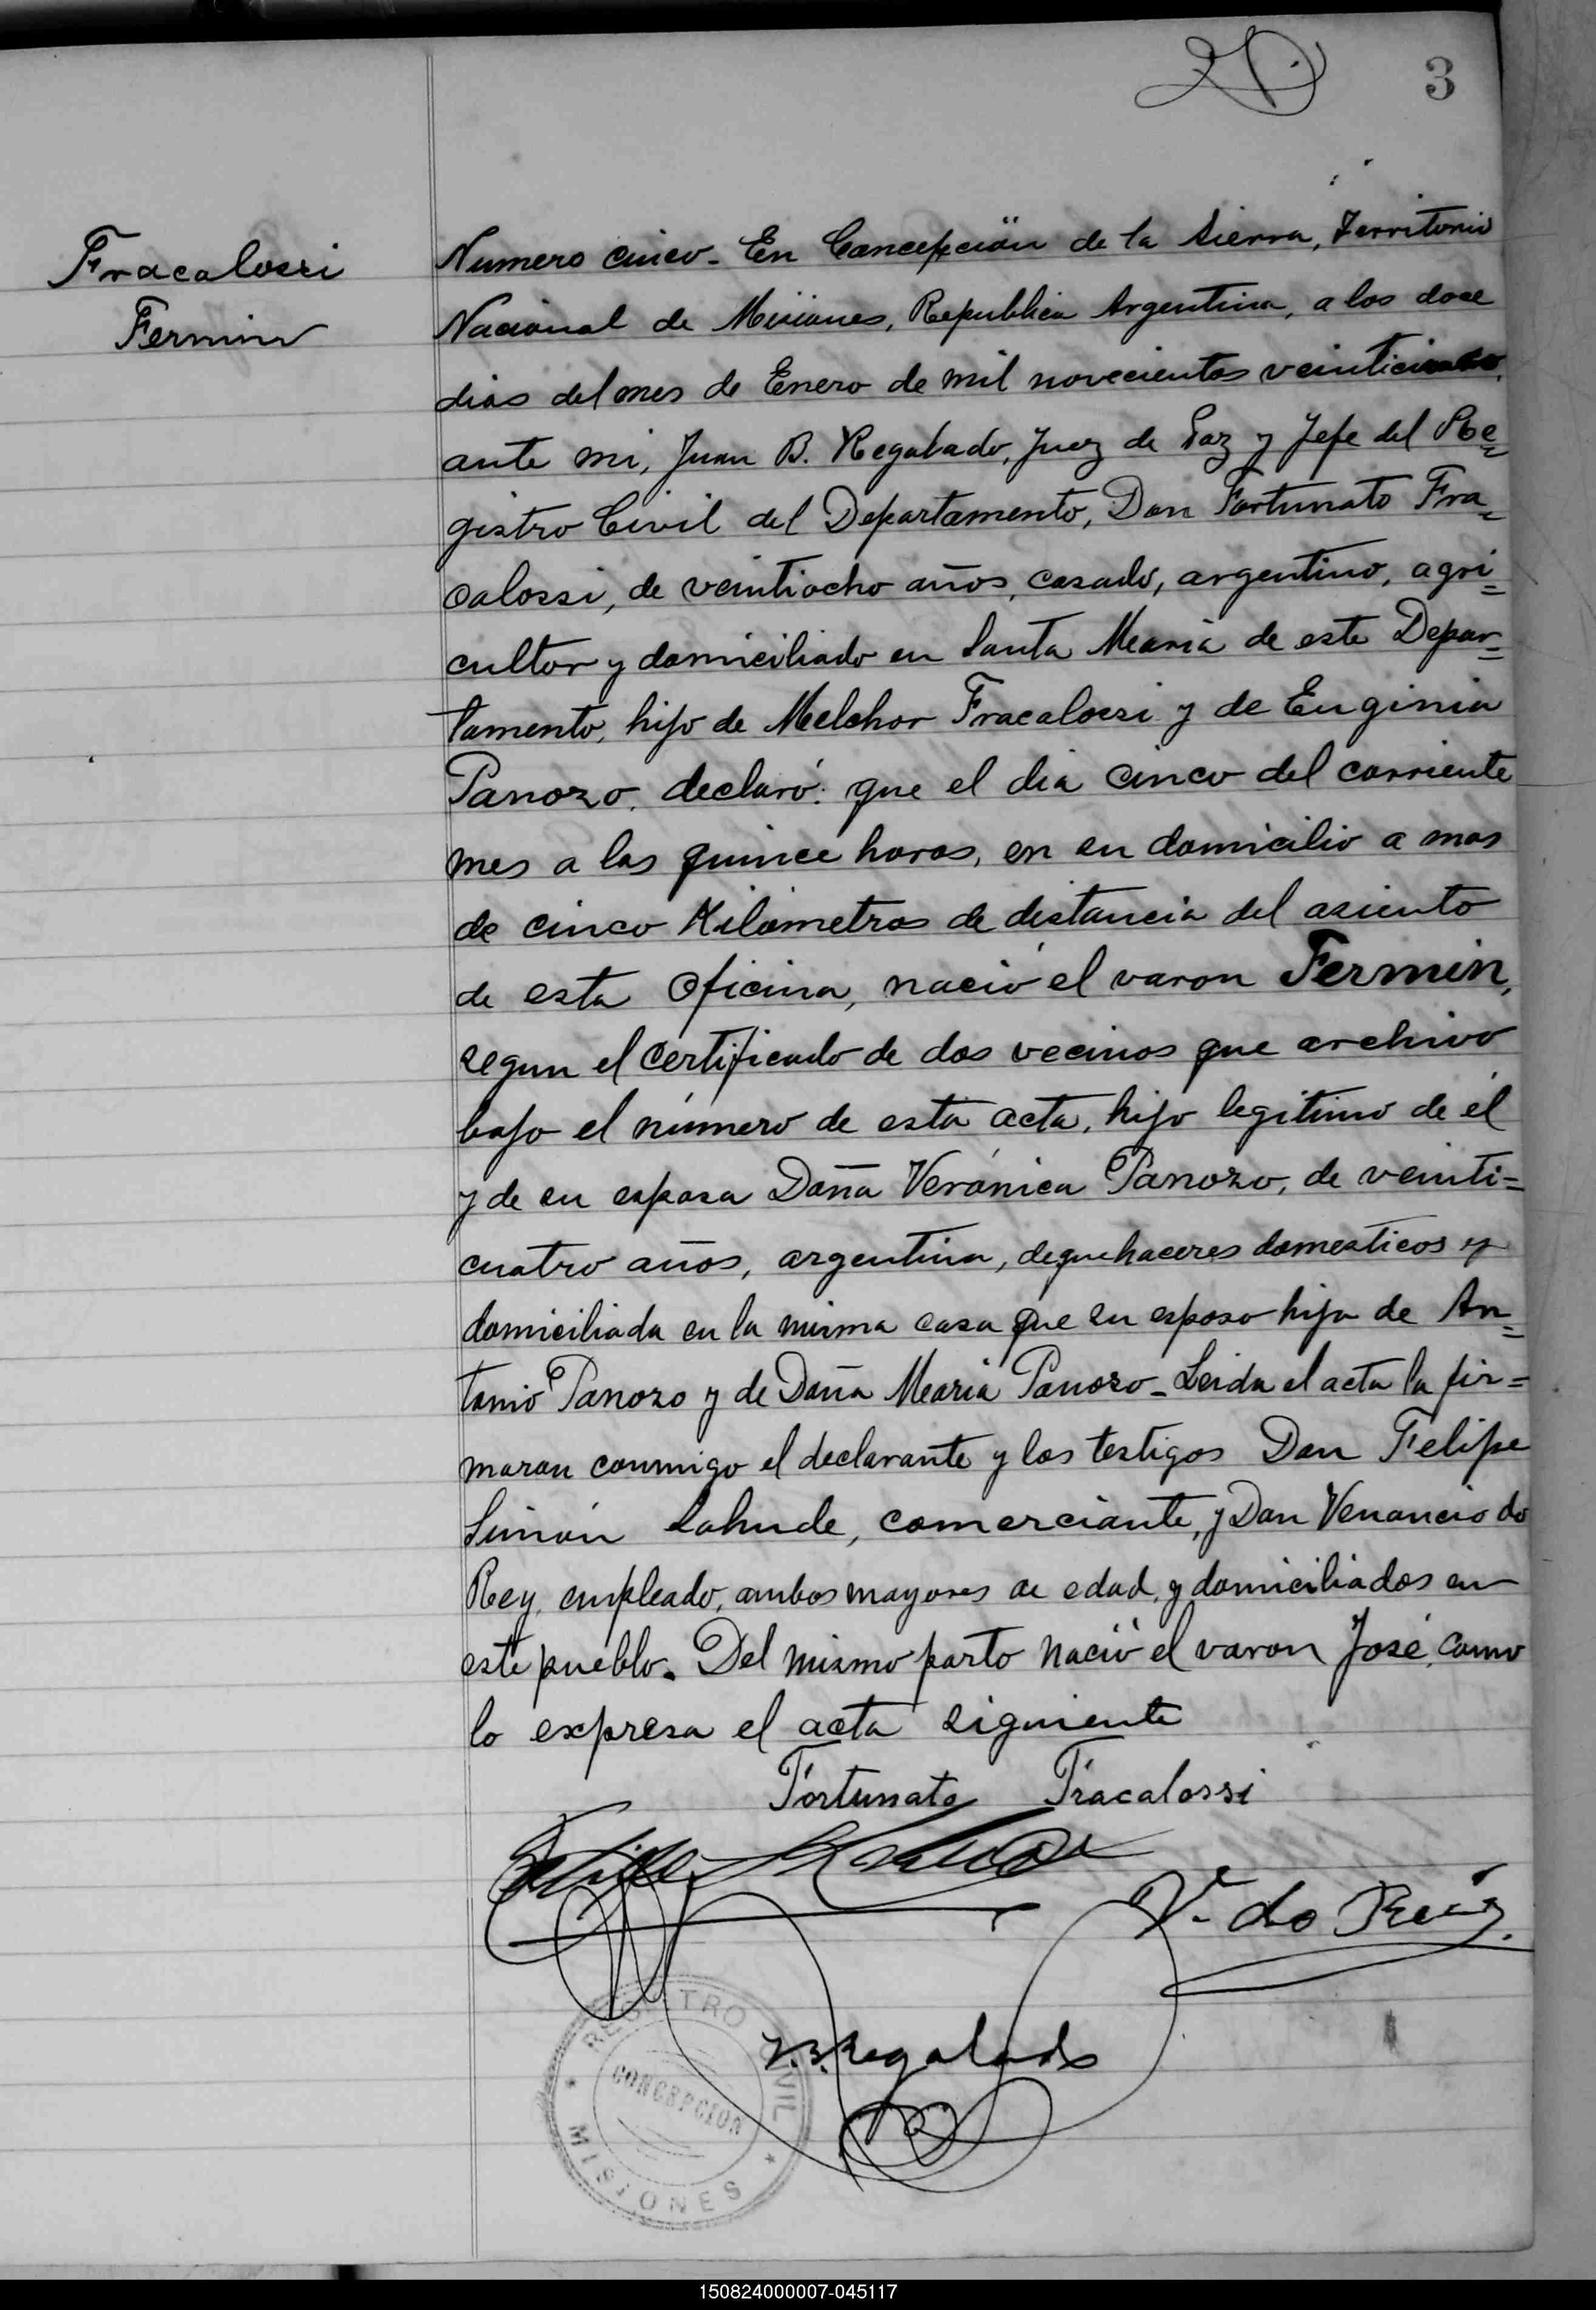 3
Fracalossi
Fermin
Numero cinco - En Concepción de la Sierra, Territorio
Nacional de Misiones, Republica Argentina, a los doce
dias del mes de Enero de mil novecientos
ante mi, Juan B. Regalado, Juez de Paz y Jefe del Re=
gistro Civil del Departamento, Don Fortunato Fra=
calossi, de veintiocho años, casado, argentino, agri=
cultor y domiciliado en Santa Maria de este Depar=
tamento, hijo de Melchor Fracalossi y de Euginia
Panozo, declaró: que el dia cinco del corriente
mes a las quince horas, en su domicilio a mas
de cinco Kilómetros de distancia del asiento
de esta Oficina, nació el varon Fermin,
segun el certificado de dos vecinos que archivo
bajo el número de esta acta, hijo legitimo de él
y de su esposa Doña Verónica Panozo, de veinti=
cuatro años, argentina, de quehaceres domesticos y
domiciliada en la misma casa que su esposo hija de An=
tonio Panozo y de Doña Maria Panozo - Leida el acta la fir=
maron conmigo el declarante y los testigos Don Felipe
Simón Lahude, comerciante, y Don Venancio do
Rey, empleado, ambos mayores de edad, y domiciliados en
este pueblo. Del mismo parto nació el varon José, como
lo expresa el acta siguiente
Fortunato Fracalossi
V. do Rey.
J.B. Regalado
REGISTRO CIVIL
CONCEPCION
MISIONES
150824000007-045117